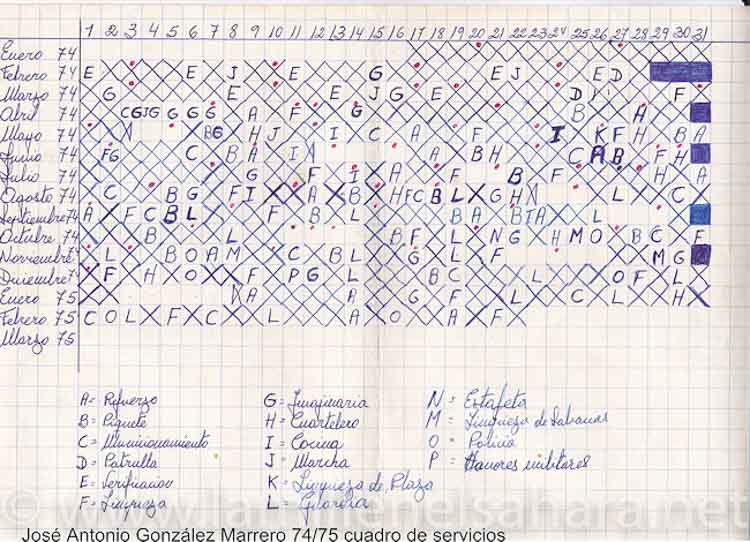 1 2 3 4 5 6 7 8 9 10 11 12 13 14 15 16 17 18 19 20 21 22 23 24 25 26 27 28 29 30 31
Enero 74
Febrero 74 E E J E G E J E D
Marzo 74 G E E J G E D F
Abril 74 C G J G G G G A F G B A
Mayo 74 B G H J I C A F I K F H B A
Junio 74 F G C B A I A A B H C A B F H
Julio 74 G F I A F B F H A
Agosto 74 C B G F I A B H F C B L G H L C
Septiembre 74 A F C B L F B L B A B I A L
Octubre 74 B L B F L N G H M O B C F
Noviembre L B O A M C B L G L F M G
F H O F P G L B C L O F L
Enero 75 A A G F L C L H
Febrero 75 C O L F C L A O A F
Marzo 75
A = Refuerzo G = Imaginaria N = Estafeta
B = Piquete H = Cuartelero M = Limpieza de Sabanas
C = Municionamiento I = Cocina O = Policia
D = Patrulla J = Marcha P = Honores militares
E = Verificacion K = Limpieza de Plaza
F = Limpieza L =
José Antonio González Marrero 74/75 cuadro de servicios